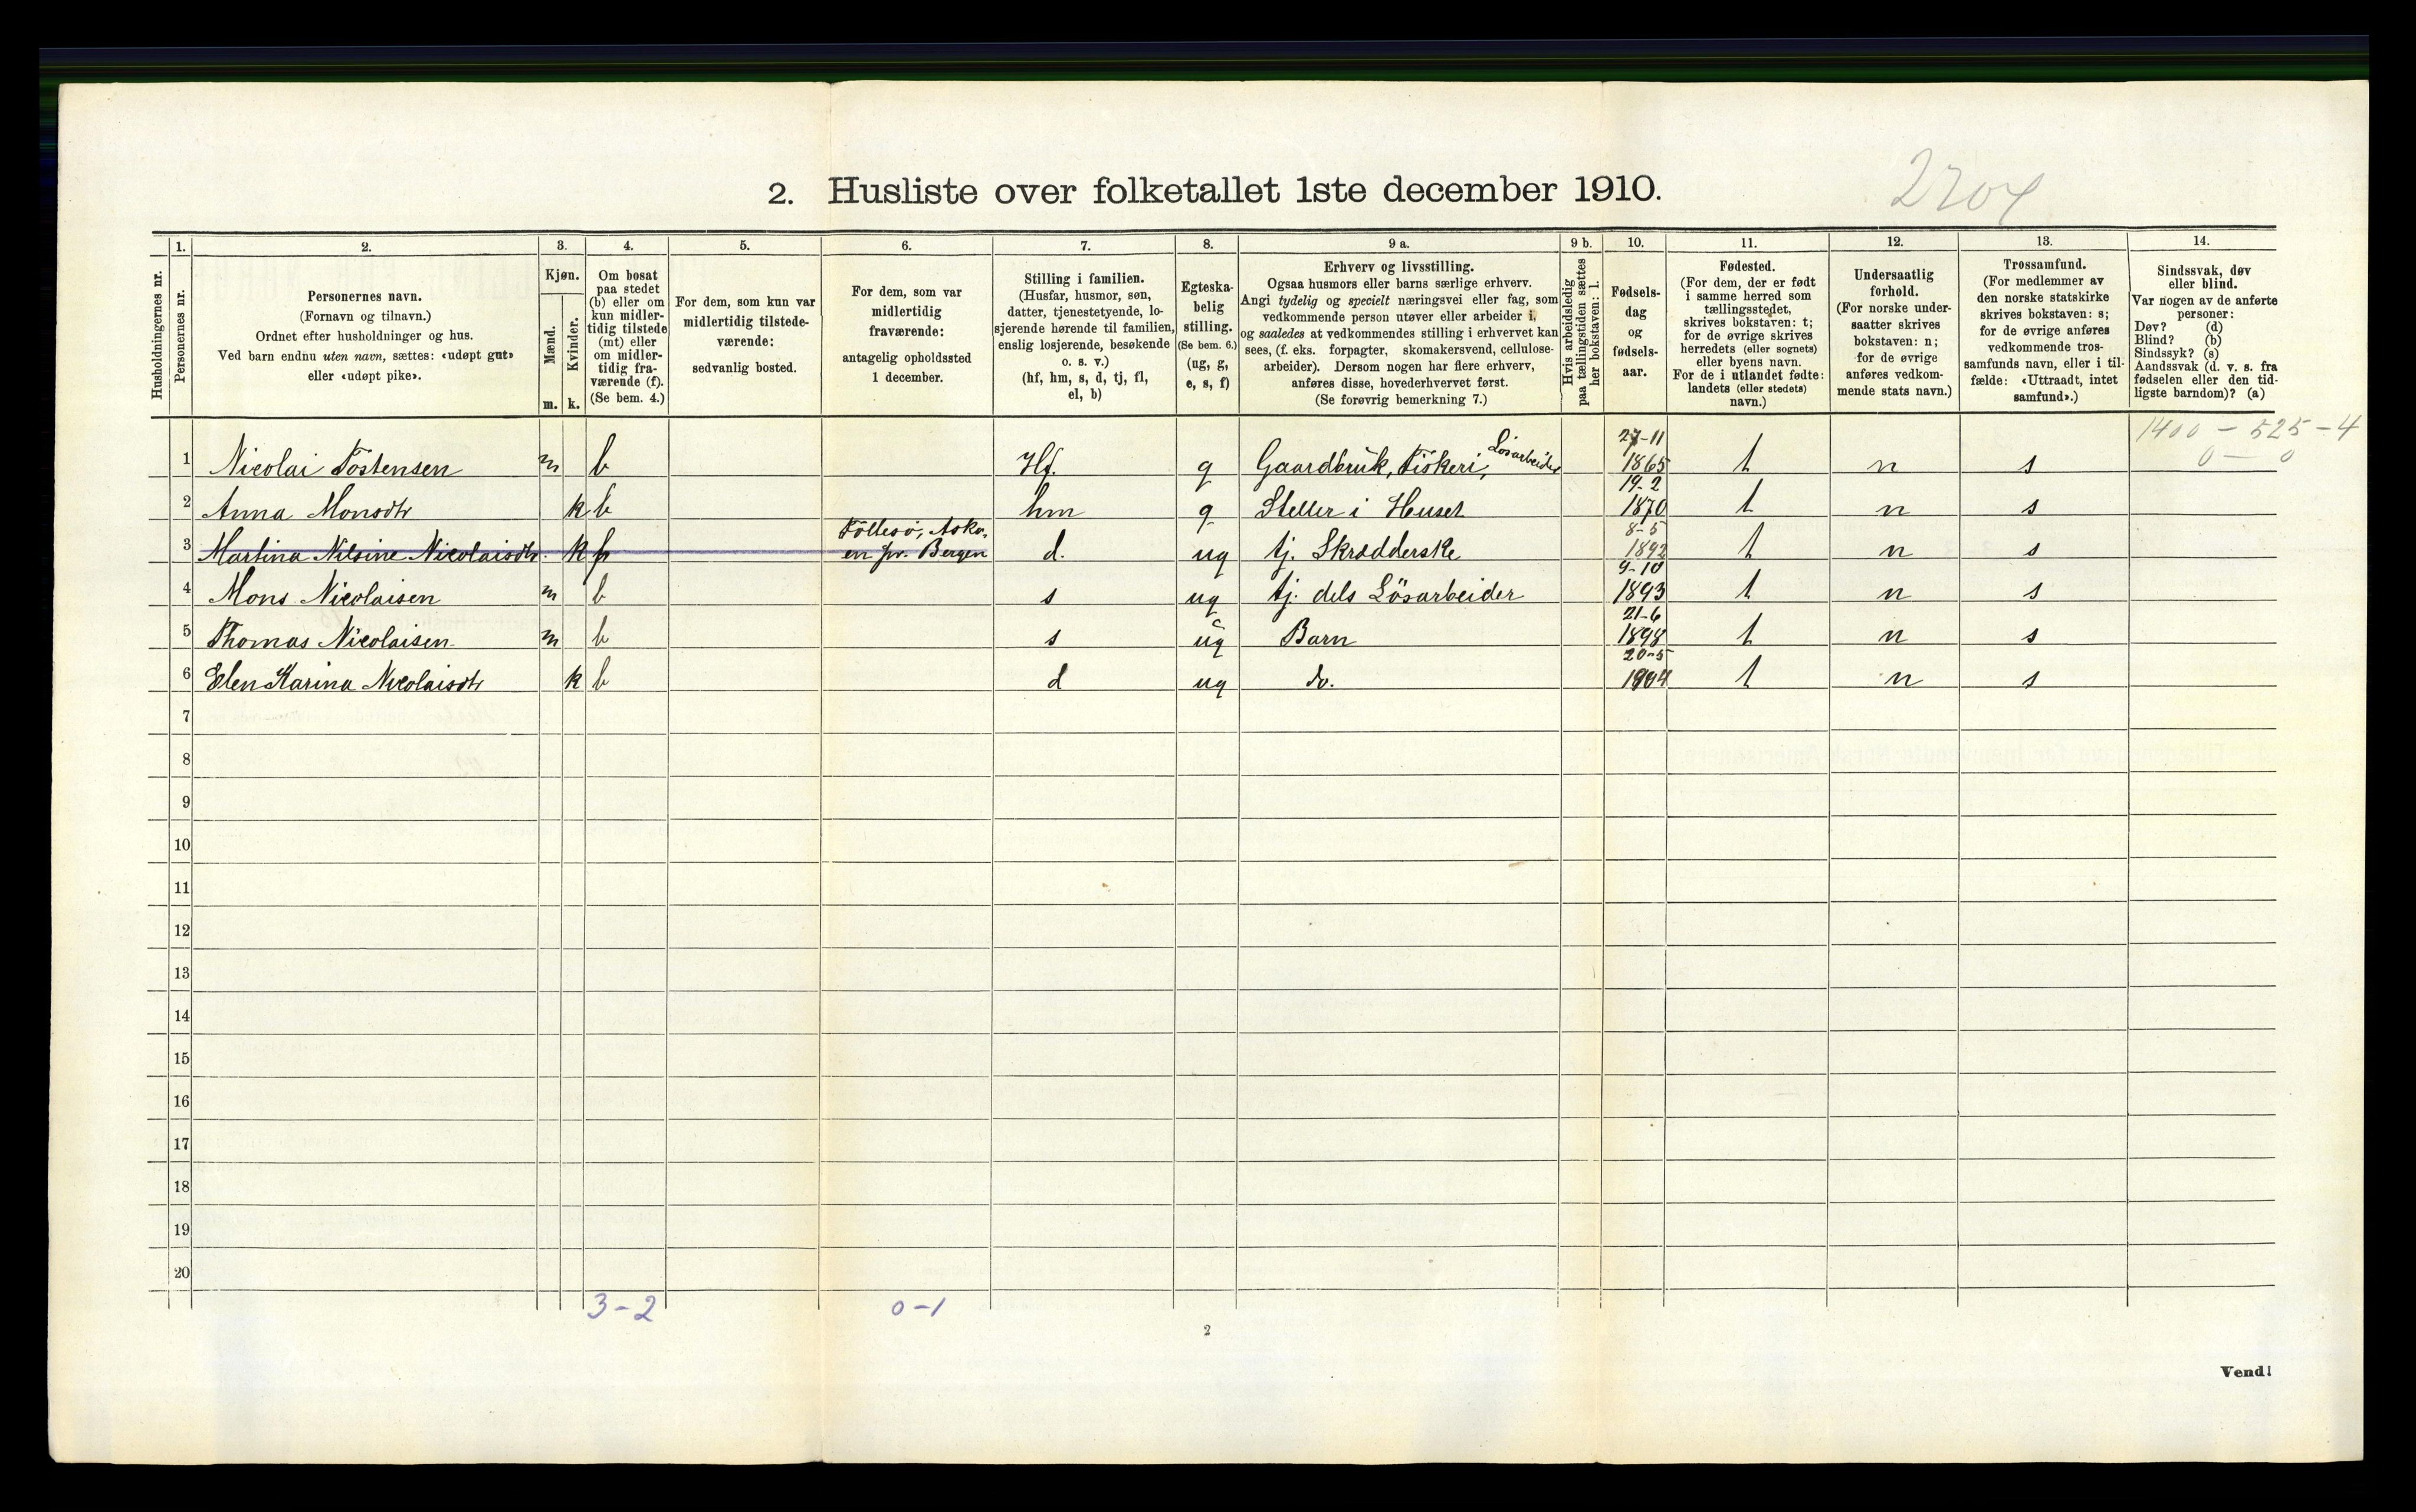 2. Husliste over folketallet 1ste december 1910.
2204
Husholdningernes nr.
1.
Personernes nr.
2.
Personernes navn.
(Fornavn og tilnavn.)
Ordnet efter husholdninger og hus.
Ved barn endnu uten navn, sættes: «udøpt gut»
eller «udøpt pike».
3.
Kjøn.
Mænd.
Kvinder.
m. k.
4.
Om bosat
paa stedet
(b) eller om
kun midler-
tidig tilstede
(mt) eller
om midler-
tidig fra-
værende (f).
(Se bem. 4.)
5.
For dem, som kun var
midlertidig tilstede-
værende:
sedvanlig bosted.
6.
For dem, som var
midlertidig
fraværende:
antagelig opholdssted
1 december.
7.
Stilling i familien.
(Husfar, husmor, søn,
datter, tjenestetyende, lo-
sjerende hørende til familien,
enslig losjerende, besøkende
o. s. v.)
(hf, hm, s, d, tj, fl,
el, b)
8.
Egteska-
belig
stilling.
(Se bem. 6.)
(ug, g,
e, s, f)
9 a.
Erhverv og livsstilling.
Ogsaa husmors eller barns særlige erhverv.
Angi tydelig og specielt næringsvei eller fag, som
vedkommende person utøver eller arbeider i,
og saaledes at vedkommendes stilling i erhvervet kan
sees, (f. eks. forpagter, skomakersvend, cellulose-
arbeider). Dersom nogen har flere erhverv,
anføres disse, hovederhvervet først.
(Se forøvrig bemerkning 7.)
9 b.
Hvis arbeidsledig
paa tællingstiden sættes
her bokstaven: l.
10.
Fødsels-
dag
og
fødsels-
aar.
11.
Fødested.
(For dem, der er født
i samme herred som
tællingsstedet,
skrives bokstaven: t;
for de øvrige skrives
herredets (eller sognets)
eller byens navn.
For de i utlandet fødte:
landets (eller stedets)
navn.)
12.
Undersaatlig
forhold.
(For norske under-
saatter skrives
bokstaven: n;
for de øvrige
anføres vedkom-
mende stats navn.)
13.
Trossamfund.
(For medlemmer av
den norske statskirke
skrives bokstaven: s;
for de øvrige anføres
vedkommende tros-
samfunds navn, eller i til-
fælde: «Uttraadt, intet
samfund».)
14.
Sindssvak, døv
eller blind.
Var nogen av de anførte
personer:
Døv? (d)
Blind? (b)
Sindssyk? (s)
Aandssvak (d. v. s. fra
fødselen eller den tid-
ligste barndom)? (a)
1400 - 525 - 4
0 - 0
1 Nicolai Tostensen m b Hf. g Gaardbruk, Fiskeri, Løsarbeider 27-11 1865 t n s
2 Anna Monsdtr k b hm g Steller i Huset 19-2 1870 t n s
3 Martina Nilsine Nicolaisdtr. k f Follesø, Asko-
en pr. Bergen d. ug tj. Skrædderske 8-5 1892 t n s
4 Mons Nicolaisen m b s ug tj. dels Løsarbeider 9-10 1893 t n s
5 Thomas Nicolaisen m b s ug Barn 21-6 1898 t n s
6 Elen Karina Nicolaisdtr k b d ug do. 20-5 1904 t n s
7
8
9
10
11
12
13
14
15
16
17
18
19
20
3-2 0-1
2
Vend!